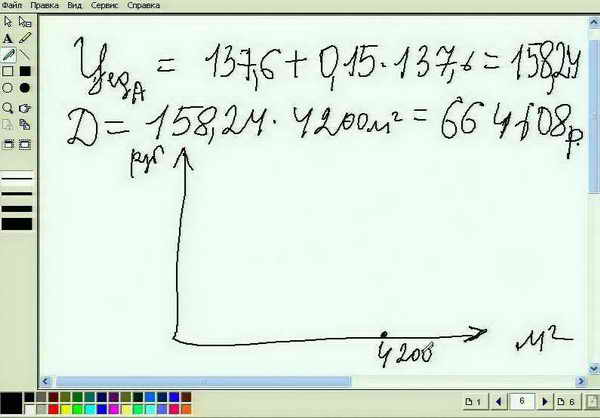 Файл Правка Вид Сервис Справка
Ц_ед_A = 137,6 + 0,15 · 137,6 = 158,24
D = 158,24 · 4200 м² = 664608 р.
руб
4200
м²
1
6
6